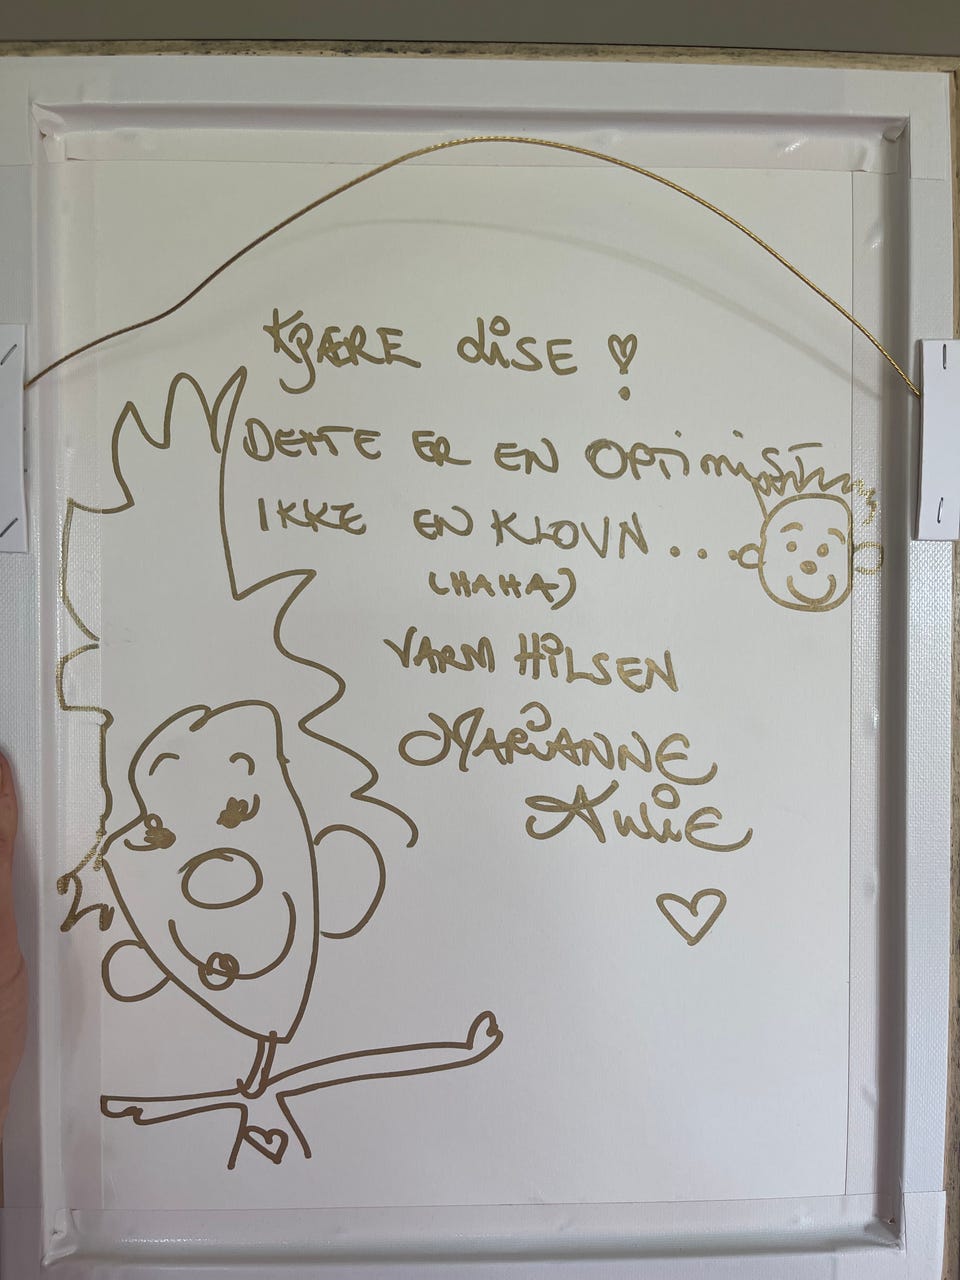 KJÆRE LISE !
DETTE ER EN OPTIMIST
IKKE EN KLOVN...
(HAHA)
VARM HILSEN
MARIANNE
AULIE